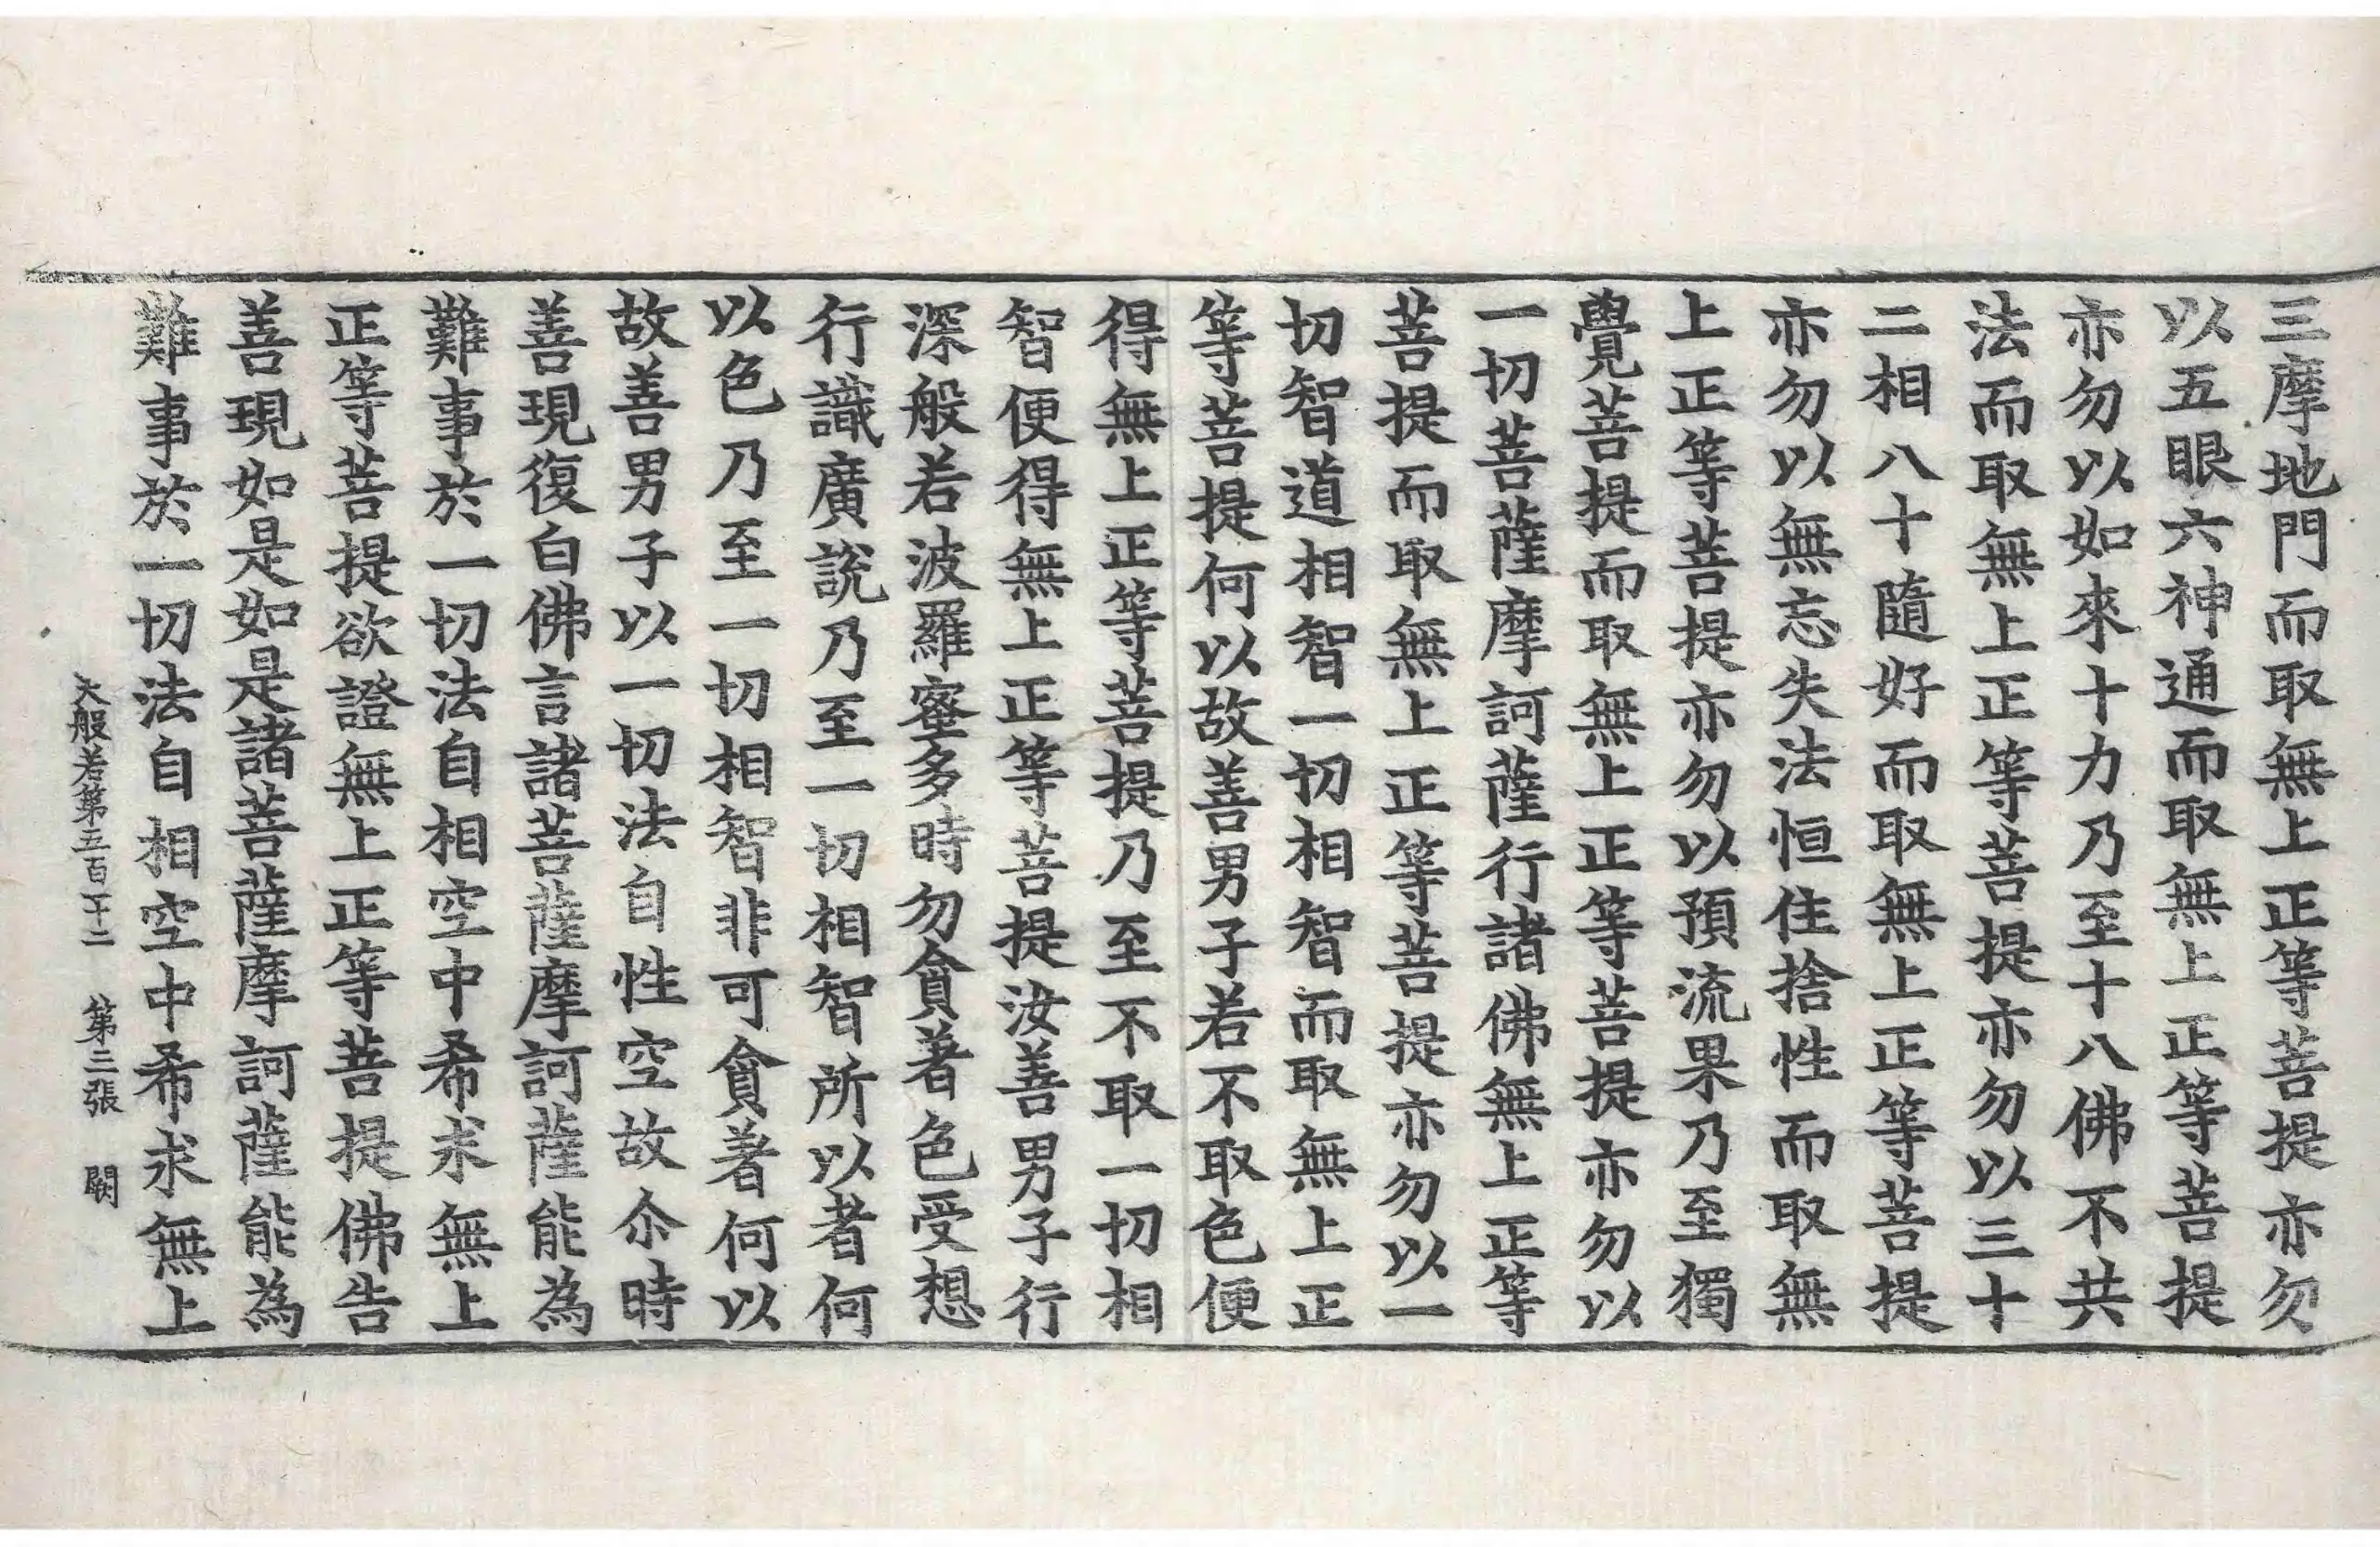 三摩地門而取無上正等菩提亦勿
以五眼六神通而取無上正等菩提
亦勿以如來十力乃至十八佛不共
法而取無上正等菩提亦勿以三十
二相八十隨好而取無上正等菩提
亦勿以無忘失法恒住捨性而取無
上正等菩提亦勿以預流果乃至獨
覺菩提而取無上正等菩提亦勿以
一切菩薩摩訶薩行諸佛無上正等
菩提而取無上正等菩提亦勿以一
切智道相智一切相智而取無上正
等菩提何以故善男子若不取色便
得無上正等菩提乃至不取一切相
智便得無上正等菩提汝善男子行
深般若波羅蜜多時勿貪著色受想
行識廣說乃至一切相智所以者何
以色乃至一切相智非可貪著何以
故善男子以一切法自性空故尒時
善現復白佛言諸菩薩摩訶薩能為
難事於一切法自相空中希求無上
正等菩提欲證無上正等菩提佛告
善現如是如是諸菩薩摩訶薩能為
難事於一切法自相空中希求無上
大般若第五百十二 第三張 闕